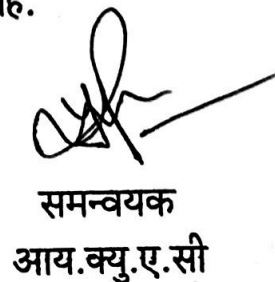 समन्वयक
आय.क्यु.ए.सी